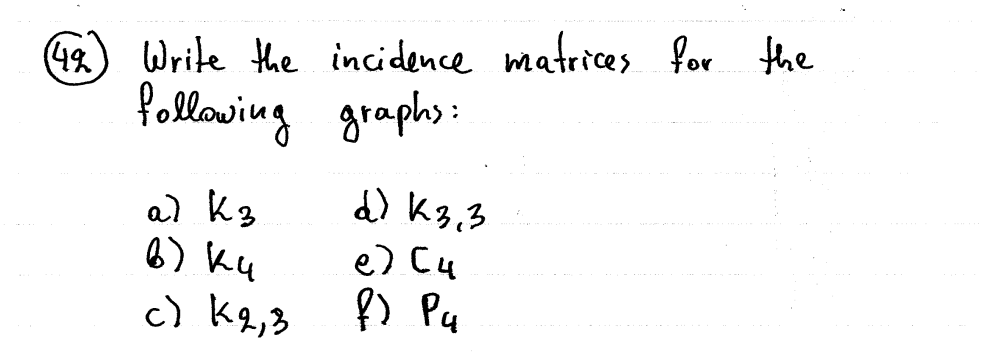 42) Write the incidence matrices for the
following graphs:
a) K3 d) K3,3
b) K4 e) C4
c) K2,3 f) P4